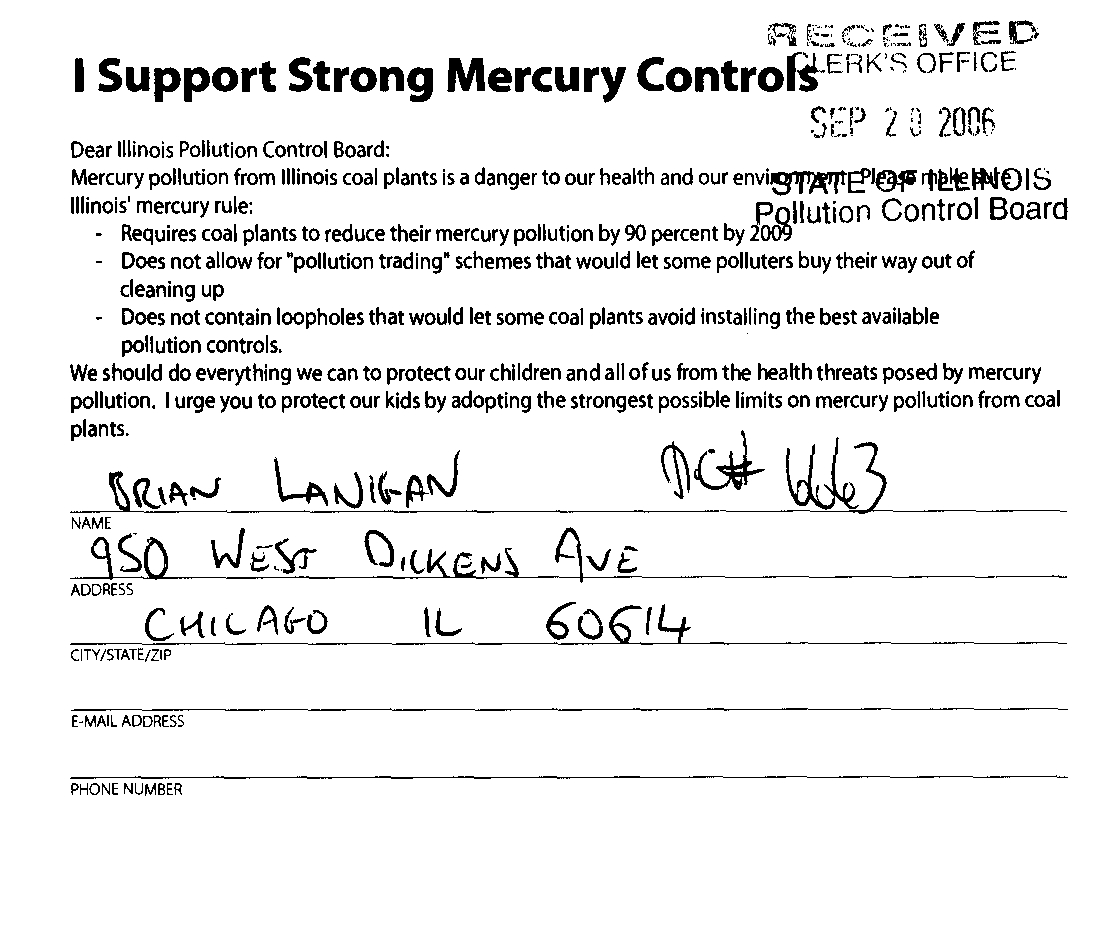 RECEIVED
CLERK'S OFFICE
I Support Strong Mercury Controls
SEP 20 2006
Dear Illinois Pollution Control Board:
Mercury pollution from Illinois coal plants is a danger to our health and our environment. Please make sure
STATE OF ILLINOIS
Illinois' mercury rule:
Pollution Control Board
- Requires coal plants to reduce their mercury pollution by 90 percent by 2009
- Does not allow for "pollution trading" schemes that would let some polluters buy their way out of
cleaning up
- Does not contain loopholes that would let some coal plants avoid installing the best available
pollution controls.
We should do everything we can to protect our children and all of us from the health threats posed by mercury
pollution. I urge you to protect our kids by adopting the strongest possible limits on mercury pollution from coal
plants.
BRIAN LANIGAN PC# 6663
NAME
950 WEST DICKENS AVE
ADDRESS
CHICAGO IL 60614
CITY/STATE/ZIP
E-MAIL ADDRESS
PHONE NUMBER